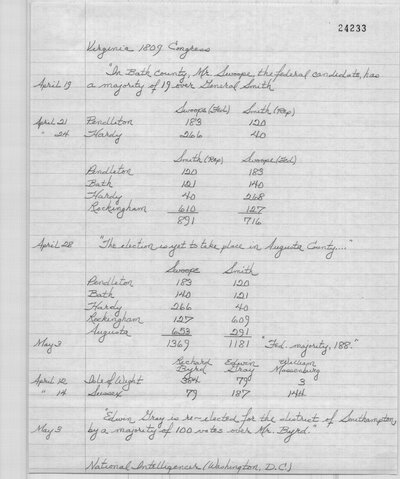 24233
Virginia 1809 Congress
"In Bath County, Mr. Swoope, the federal candidate, has
April 19 a majority of 19 over General Smith
Swoope (Fed) Smith (Rep)
April 21 Pendleton 183 120
" 24 Hardy 266 40
Smith (Rep) Swoope (Fed)
Pendleton 120 183
Bath 121 140
Hardy 40 268
Rockingham 610 127
891 716
April 28 "The election is yet to take place in Augusta County...."
Swoope Smith
Pendleton 183 120
Bath 140 121
Hardy 266 40
Rockingham 127 609
Augusta 653 291
May 3 1369 1181 "Fed. majority, 188."
Richard Edwin William
Byrd Gray Massenburg
April 12 Isle of Wight 384 79 3
" 14 Sussex 79 187 144
"Edwin Gray is re-elected for the district of Southampton,
May 3 by a majority of 100 votes over Mr. Byrd."
National Intelligencer (Washington, D.C.)